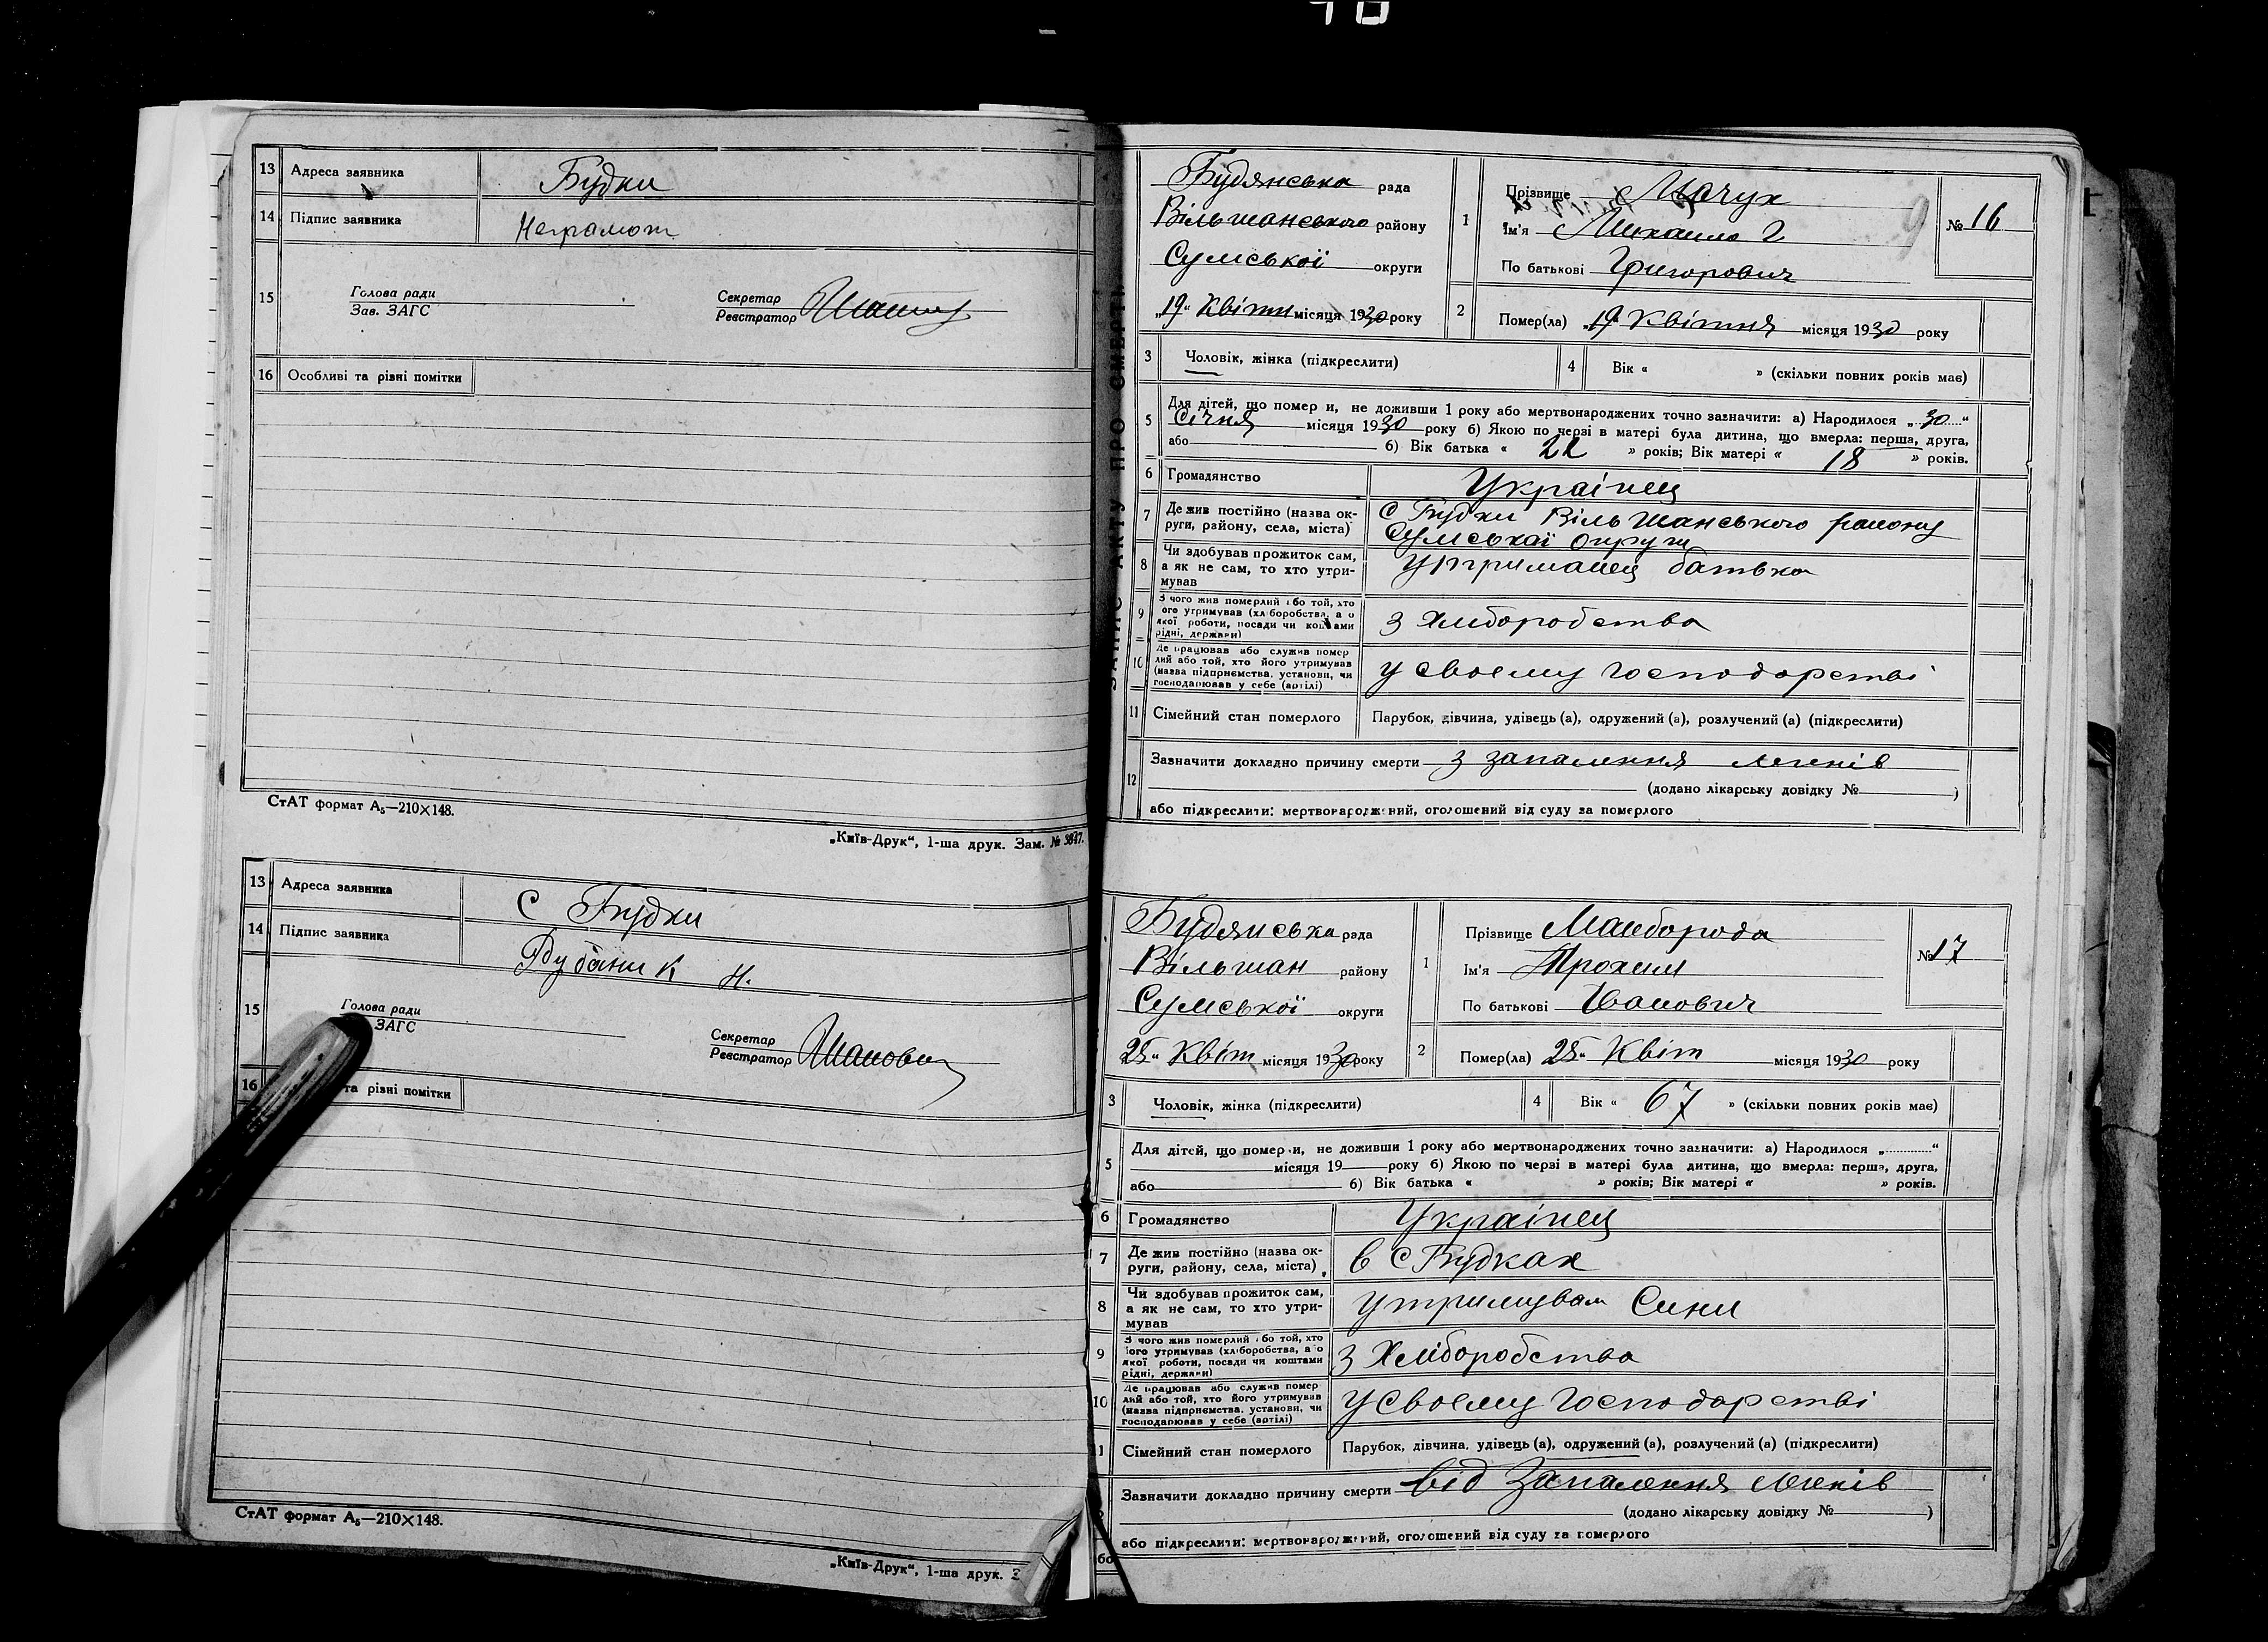 13 Адреса заявника Будки
14 Підпис заявника Неграмот
15 Голова ради
Зав. ЗАГС
Секретар
Реєстратор
16 Особливі та різні помітки
СтАТ формат А₅—210×148.
„Київ-Друк“, 1-ша друк. Зам. № 3847.
13 Адреса заявника С Будки
14 Підпис заявника Н.
15 Голова ради
ЗАГС
Секретар
Реєстратор
16 та різні помітки
СтАТ формат А₅—210×148.
„Київ-Друк“, 1-ша друк. З
Будянська рада
Вільшанського району
Сумської округи
„19“ Квітня місяця 1930 року
1 Прізвище Мачух
Ім'я Михаило Г
По батькові Григорович
№ 16
9
2 Помер(ла) „19“ Квітня місяця 1930 року
3 Чоловік, жінка (підкреслити) 4 Вік « » (скільки повних років має)
5 Для дітей, що помер и, не доживши 1 року або мертвонароджених точно зазначити: а) Народилося „30“
Січня місяця 1930 року б) Якою по черзі в матері була дитина, що вмерла: перша, друга,
або б) Вік батька « 22 » років; Вік матері « 18 » років.
6 Громадянство Українец
7 Де жив постійно (назва ок-
руги, району, села, міста) С Будки Вільшанського району
Сумської округи
8 Чи здобував прожиток сам,
а як не сам, то хто утри-
мував утриманец батька
9 З чого жив померлий або той, хто
ого утримував (хліборобства, а о
якої роботи, посади чи коштами
рідні, держави) З Хліборобства
10 Де працював або служив помер
лий або той, хто його утримував
(назва підприємства, установи, чи
господарював у себе (артілі) у своему господарстві
11 Сімейний стан померлого Парубок, дівчина, удівець (а), одружений (а), розлучений (а) (підкреслити)
12 Зазначити докладно причину смерти З запалення легенів
(додано лікарську довідку № )
або підкреслити: мертвонароджений, оголошений від суду за померлого
Будянська рада
Вільшан району
Сумської округи
25“ Квіт місяця 1930 року
1 Прізвище Маиборода
Ім'я Трохим
По батькові Іванович
№ 17
2 Помер(ла) 25“ Квіт місяця 1930 року
3 Чоловік, жінка (підкреслити) 4 Вік « 67 » (скільки повних років має)
5 Для дітей, що помер и, не доживши 1 року або мертвонароджених точно зазначити: а) Народилося „............“
місяця 19 року б) Якою по черзі в матері була дитина, що вмерла: перша, друга,
або б) Вік батька « » років; Вік матері « » років.
6 Громадянство Українец
7 Де жив постійно (назва ок-
руги, району, села, міста) в С Будках
8 Чи здобував прожиток сам,
а як не сам, то хто утри-
мував утримував Сини
9 З чого жив померлий або той, хто
його утримував (хліборобства, а о
якої роботи, посади чи коштами
рідні, держави) З Хліборобства
10 Де працював або служив помер
лий або той, хто його утримував
(назва підприємства, установи, чи
господарював у себе (артілі) у своему господарстві
1 Сімейний стан померлого Парубок, дівчина, удівець (а), одружений (а), розлучений (а) (підкреслити)
Зазначити докладно причину смерти від Запалення легенів
(додано лікарську довідку № )
або підкреслити: мертвонароджений, оголошений від суду за померлого